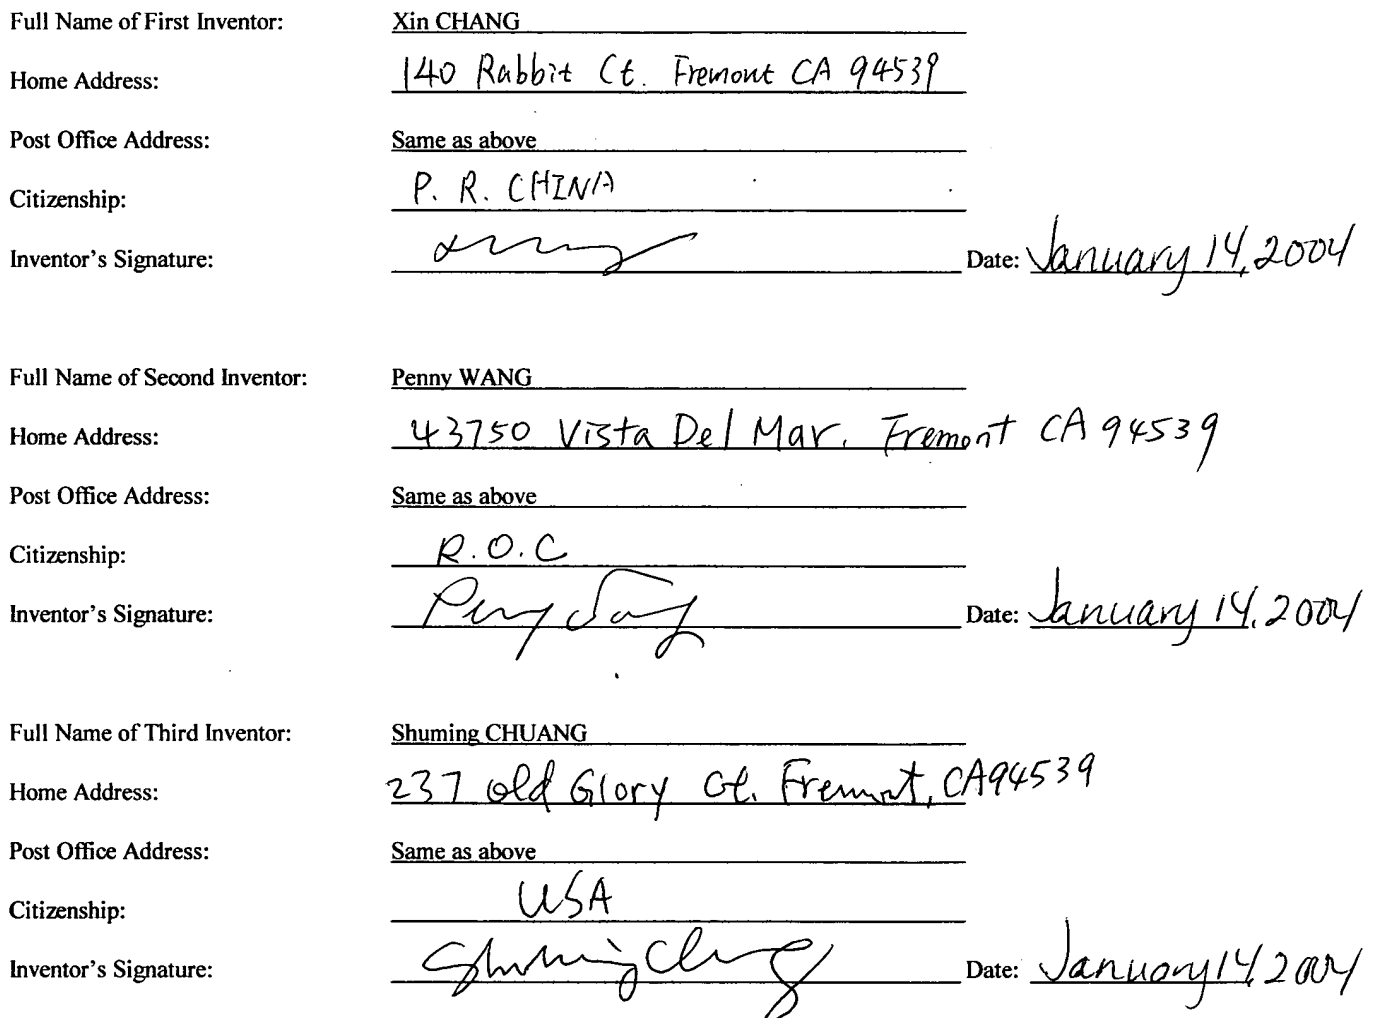 Full Name of First Inventor: Xin CHANG
Home Address: 140 Rabbit Ct. Fremont CA 94539
Post Office Address: Same as above
Citizenship: P. R. CHINA
Inventor's Signature: Date: January 14, 2004
Full Name of Second Inventor: Penny WANG
Home Address: 43750 Vista Del Mar. Fremont CA 94539
Post Office Address: Same as above
Citizenship: R.O.C
Inventor's Signature: Date: January 14, 2004
Full Name of Third Inventor: Shuming CHUANG
Home Address: 237 Old Glory Ct. Fremont, CA94539
Post Office Address: Same as above
Citizenship: USA
Inventor's Signature: Shuming Date: January 14, 2004